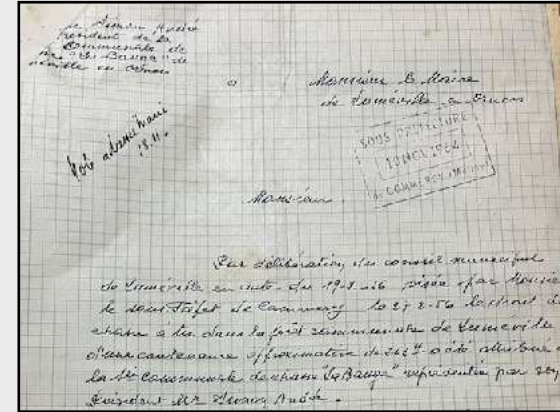 Simon André
Président de la
Communale de
"La Bauge" de
en Ornois
à Monsieur le Maire
de Luméville en Ornois
18.11.
SOUS PREFECTURE
10 NOV 1962
de COMMERCY (MEUSE)
Monsieur.
Par délibération du conseil municipal
de Luméville en date du 19-2-56 visée par Monsieur
le sous Préfet de Commercy le 27-2-56 le droit de
chasse a tir dans la forêt communale de Luméville
d'une contenance approximative de a été attribué a
la Sté Communale de chasse "La Bauge" représentée par son
Président Mr Simon André.